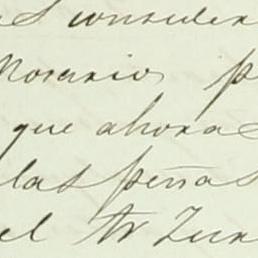 consider
Rosario p
que ahora
las peñas
el Sr Zur